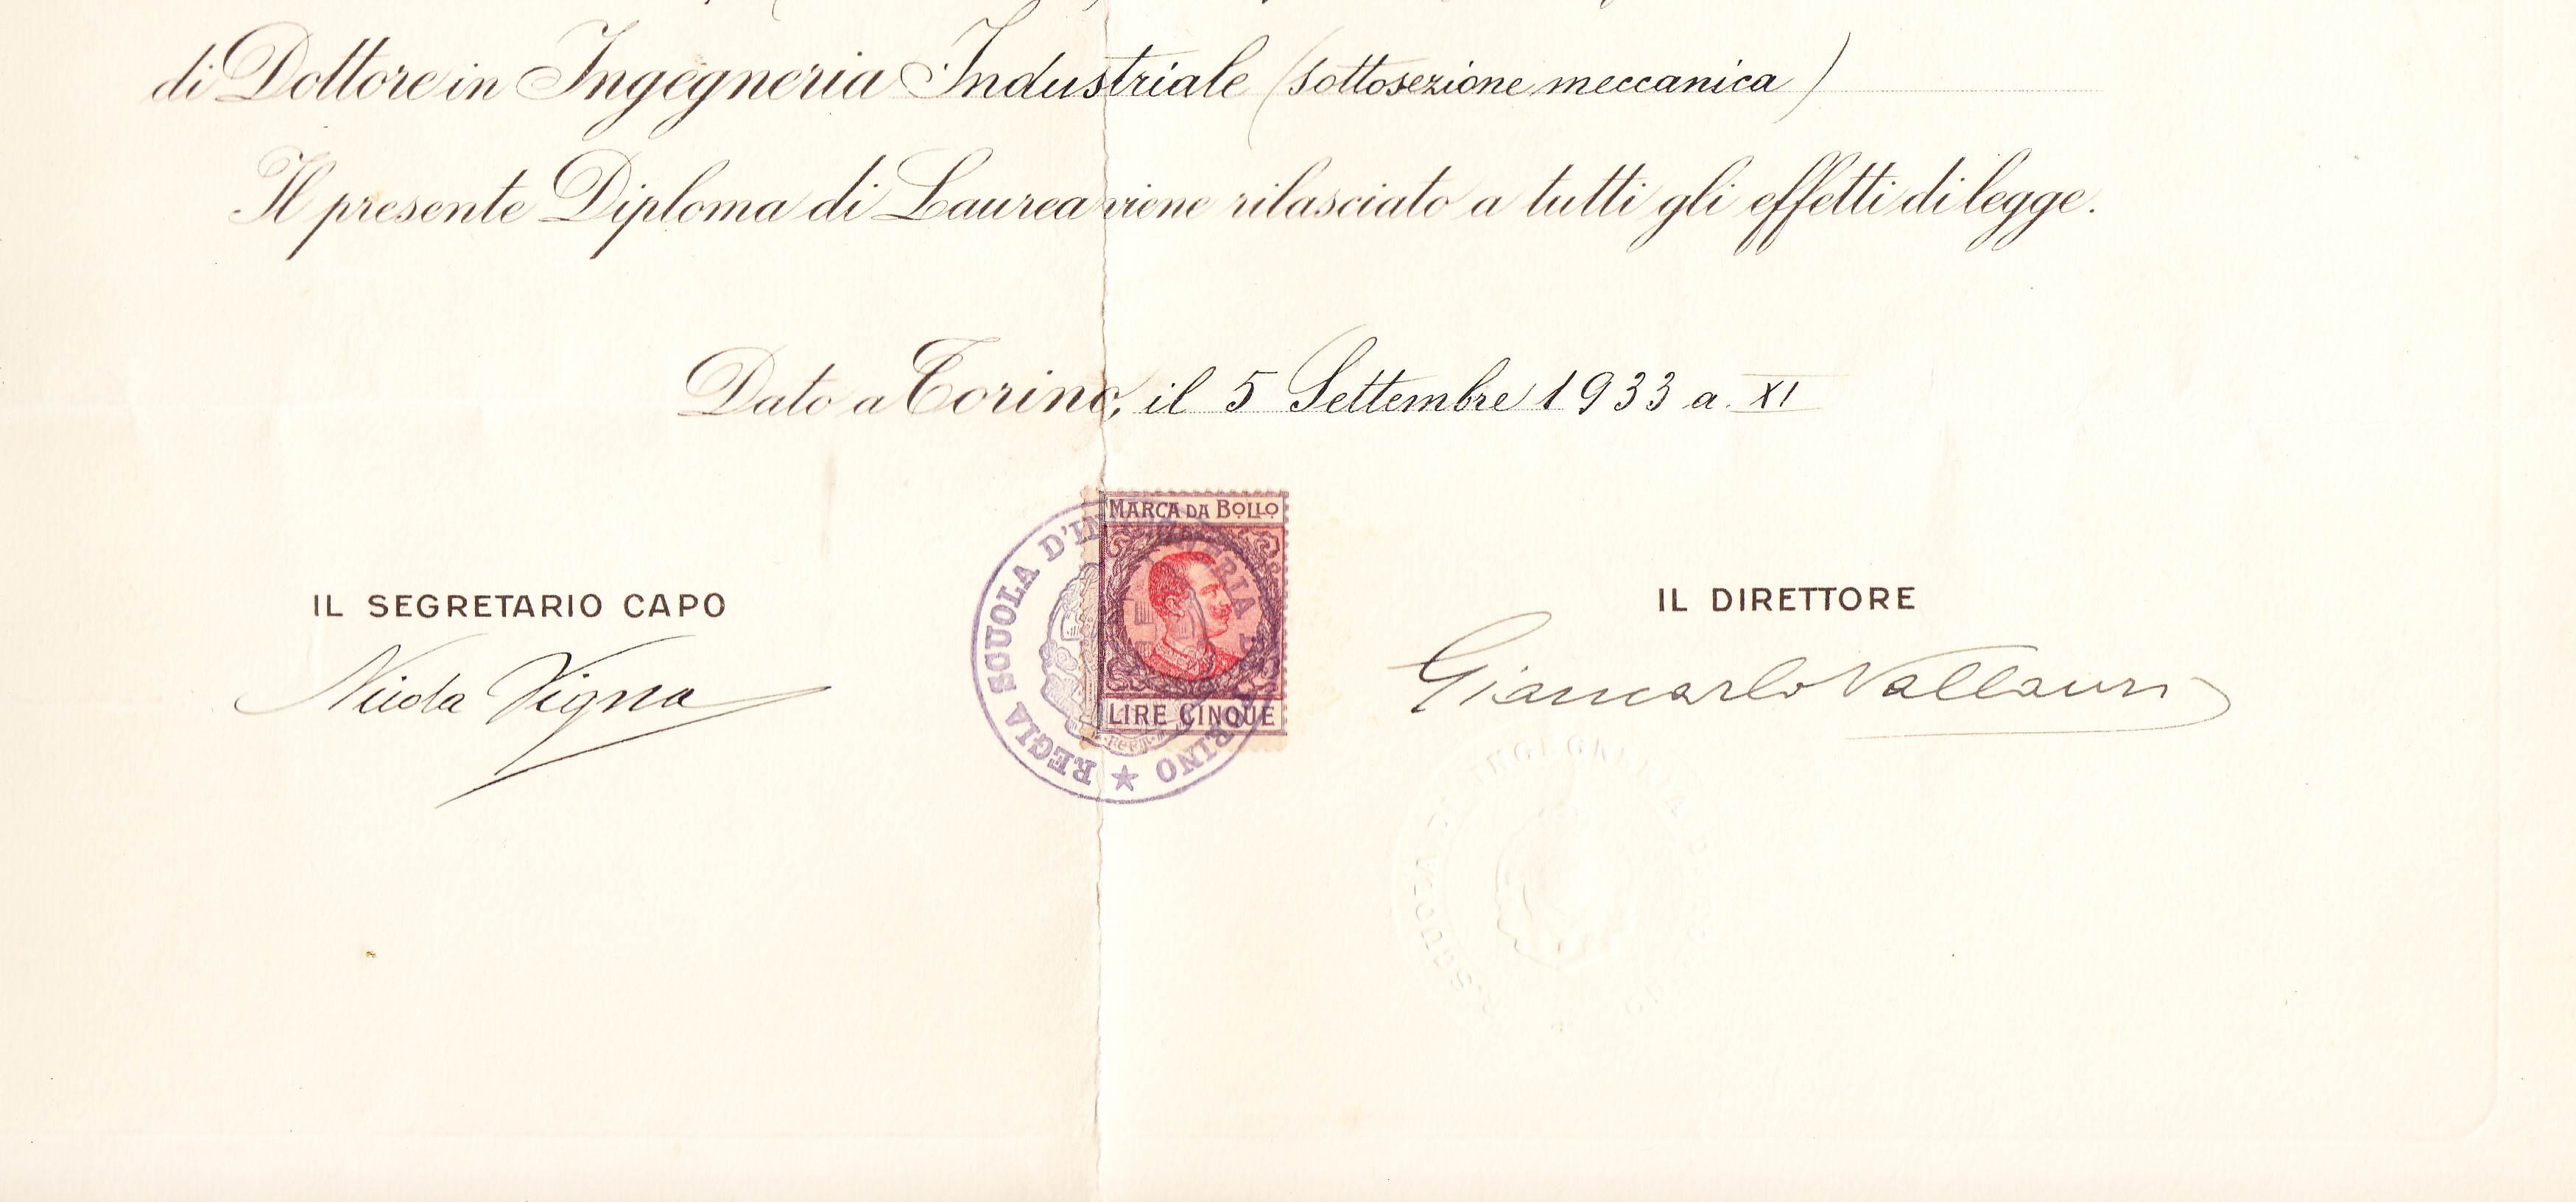 di Dottore in Ingegneria Industriale (sottosezione meccanica)
Il presente Diploma di Laurea viene rilasciato a tutti gli effetti di legge.
Dato a Torino, il 5 Settembre 1933 a. XI
MARCA DA BOLLO
LIRE CINQUE
REGIA SCUOLA D'IN RIA RINO
IL SEGRETARIO CAPO
Nicola Vigna
IL DIRETTORE
Giancarlo Vallauri
SCUOLA INGEGNERIA